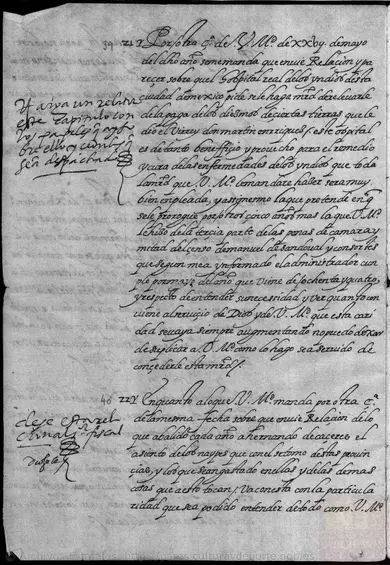 39 21 Por otra çª de V. Mª. de xxvj. de mayo
del dho año se me manda que envie Relaçion y pa
recer sobre que el ospital real de los yndios desta
ciudad de mexico pide se le haga mrd de releuarle
de la paga de los diezmos de çiertas tierras que le
dio el Virrey don martin enrriquez / este ospital
es de tanto benefficio y prouecho para el remedio
y cura de las enfermedades de los yndios que toda
la mrd que V. Mª. le mandare haber sera muy
bien empleada, y assymesmo la que pretende en q
se le prorrogue por otros cinco años mas la que V. Mª
le hizo de la terçia parte de las penas de camara y
mitad del çenso de manuel de sandoual y consortes
que segun me a ynformado el administrador cun
ple por mayo del año que viene de ochenta y quatro
y respeto de entender su necessidad y ver quanto con
uiene al seruiçio de Dios y de V. Mª. que esta cari
dad se vaya siempre augmentando no puedo dexar
de suplicar a V. Mª. como lo hago sea seruido de
conçederle esta mrd /
aya un relator
este capitulo con
los papeles q ay so
bre ello y
sea despachado
46 22 En quanto a lo que V. Mª. manda por otra çª
de la mesma fecha sobre que envie Relaçion de lo
que a valido cada año a hernando de caceres el
asiento de los naypes que con el tomo destas prouin
cias, y los que se an gastado en ellas y de las demas
cosas que a esto tocan / Va con esta con la particula
ridad que se a podido entender de todo como V. Mª.
dese esta rel
al fiscal